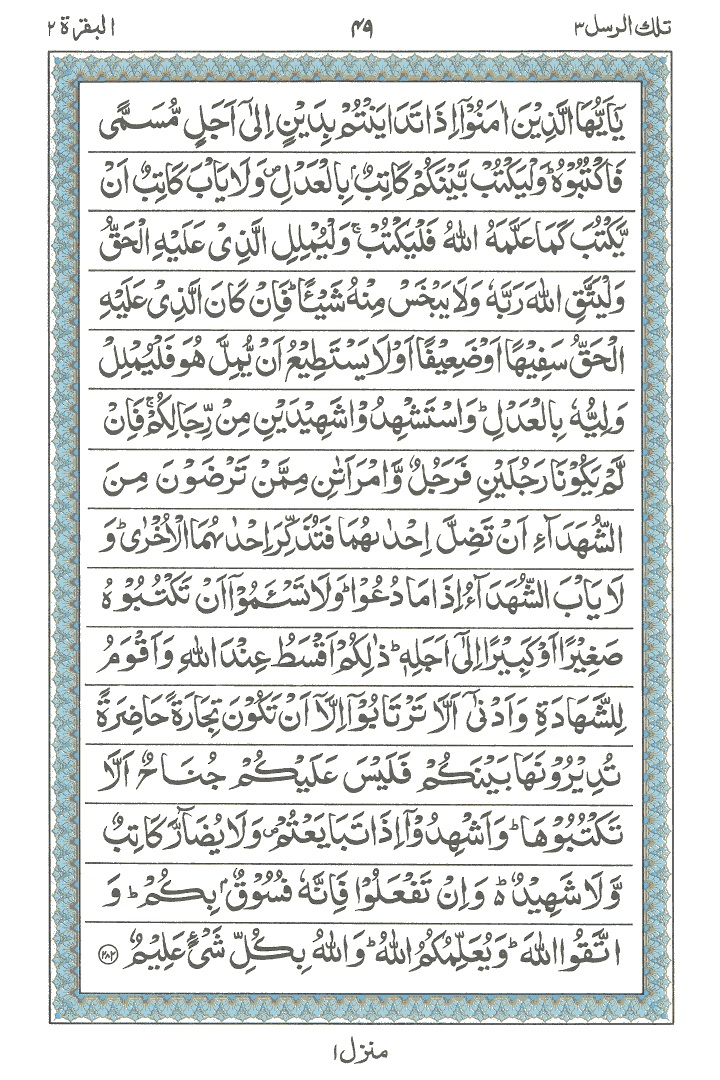 تلك الرسل ٣ ٤٩ البقرة ٢
يٰٓاَيُّهَا الَّذِيْنَ اٰمَنُوْٓا اِذَا تَدَايَنْتُمْ بِدَيْنٍ اِلٰٓى اَجَلٍ مُّسَمًّى
فَاكْتُبُوْهُ ؕ وَلْيَكْتُبْ بَّيْنَكُمْ كَاتِبٌۢ بِالْعَدْلِ ۪ وَلَا يَاْبَ كَاتِبٌ اَنْ
يَّكْتُبَ كَمَا عَلَّمَهُ اللّٰهُ فَلْيَكْتُبْ ۚ وَلْيُمْلِلِ الَّذِيْ عَلَيْهِ الْحَقُّ
وَلْيَتَّقِ اللّٰهَ رَبَّهٗ وَلَا يَبْخَسْ مِنْهُ شَيْـًٔا ؕ فَاِنْ كَانَ الَّذِيْ عَلَيْهِ
الْحَقُّ سَفِيْهًا اَوْ ضَعِيْفًا اَوْ لَا يَسْتَطِيْعُ اَنْ يُّمِلَّ هُوَ فَلْيُمْلِلْ
وَلِيُّهٗ بِالْعَدْلِ ؕ وَاسْتَشْهِدُوْا شَهِيْدَيْنِ مِنْ رِّجَالِكُمْ ۚ فَاِنْ
لَّمْ يَكُوْنَا رَجُلَيْنِ فَرَجُلٌ وَّامْرَاَتٰنِ مِمَّنْ تَرْضَوْنَ مِنَ
الشُّهَدَآءِ اَنْ تَضِلَّ اِحْدٰىهُمَا فَتُذَكِّرَ اِحْدٰىهُمَا الْاُخْرٰى ؕ وَ
لَا يَاْبَ الشُّهَدَآءُ اِذَا مَا دُعُوْا ؕ وَلَا تَسْـَٔمُوْٓا اَنْ تَكْتُبُوْهُ
صَغِيْرًا اَوْ كَبِيْرًا اِلٰٓى اَجَلِهٖ ؕ ذٰلِكُمْ اَقْسَطُ عِنْدَ اللّٰهِ وَاَقْوَمُ
لِلشَّهَادَةِ وَاَدْنٰٓى اَلَّا تَرْتَابُوْٓا اِلَّآ اَنْ تَكُوْنَ تِجَارَةً حَاضِرَةً
تُدِيْرُوْنَهَا بَيْنَكُمْ فَلَيْسَ عَلَيْكُمْ جُنَاحٌ اَلَّا
تَكْتُبُوْهَا ؕ وَاَشْهِدُوْٓا اِذَا تَبَايَعْتُمْ ۪ وَلَا يُضَآرَّ كَاتِبٌ
وَّلَا شَهِيْدٌ ؕ۬ وَاِنْ تَفْعَلُوْا فَاِنَّهٗ فُسُوْقٌۢ بِكُمْ ؕ وَ
اتَّقُوا اللّٰهَ ؕ وَيُعَلِّمُكُمُ اللّٰهُ ؕ وَاللّٰهُ بِكُلِّ شَيْءٍ عَلِيْمٌ ﴿۲۸۲﴾
منزل ١